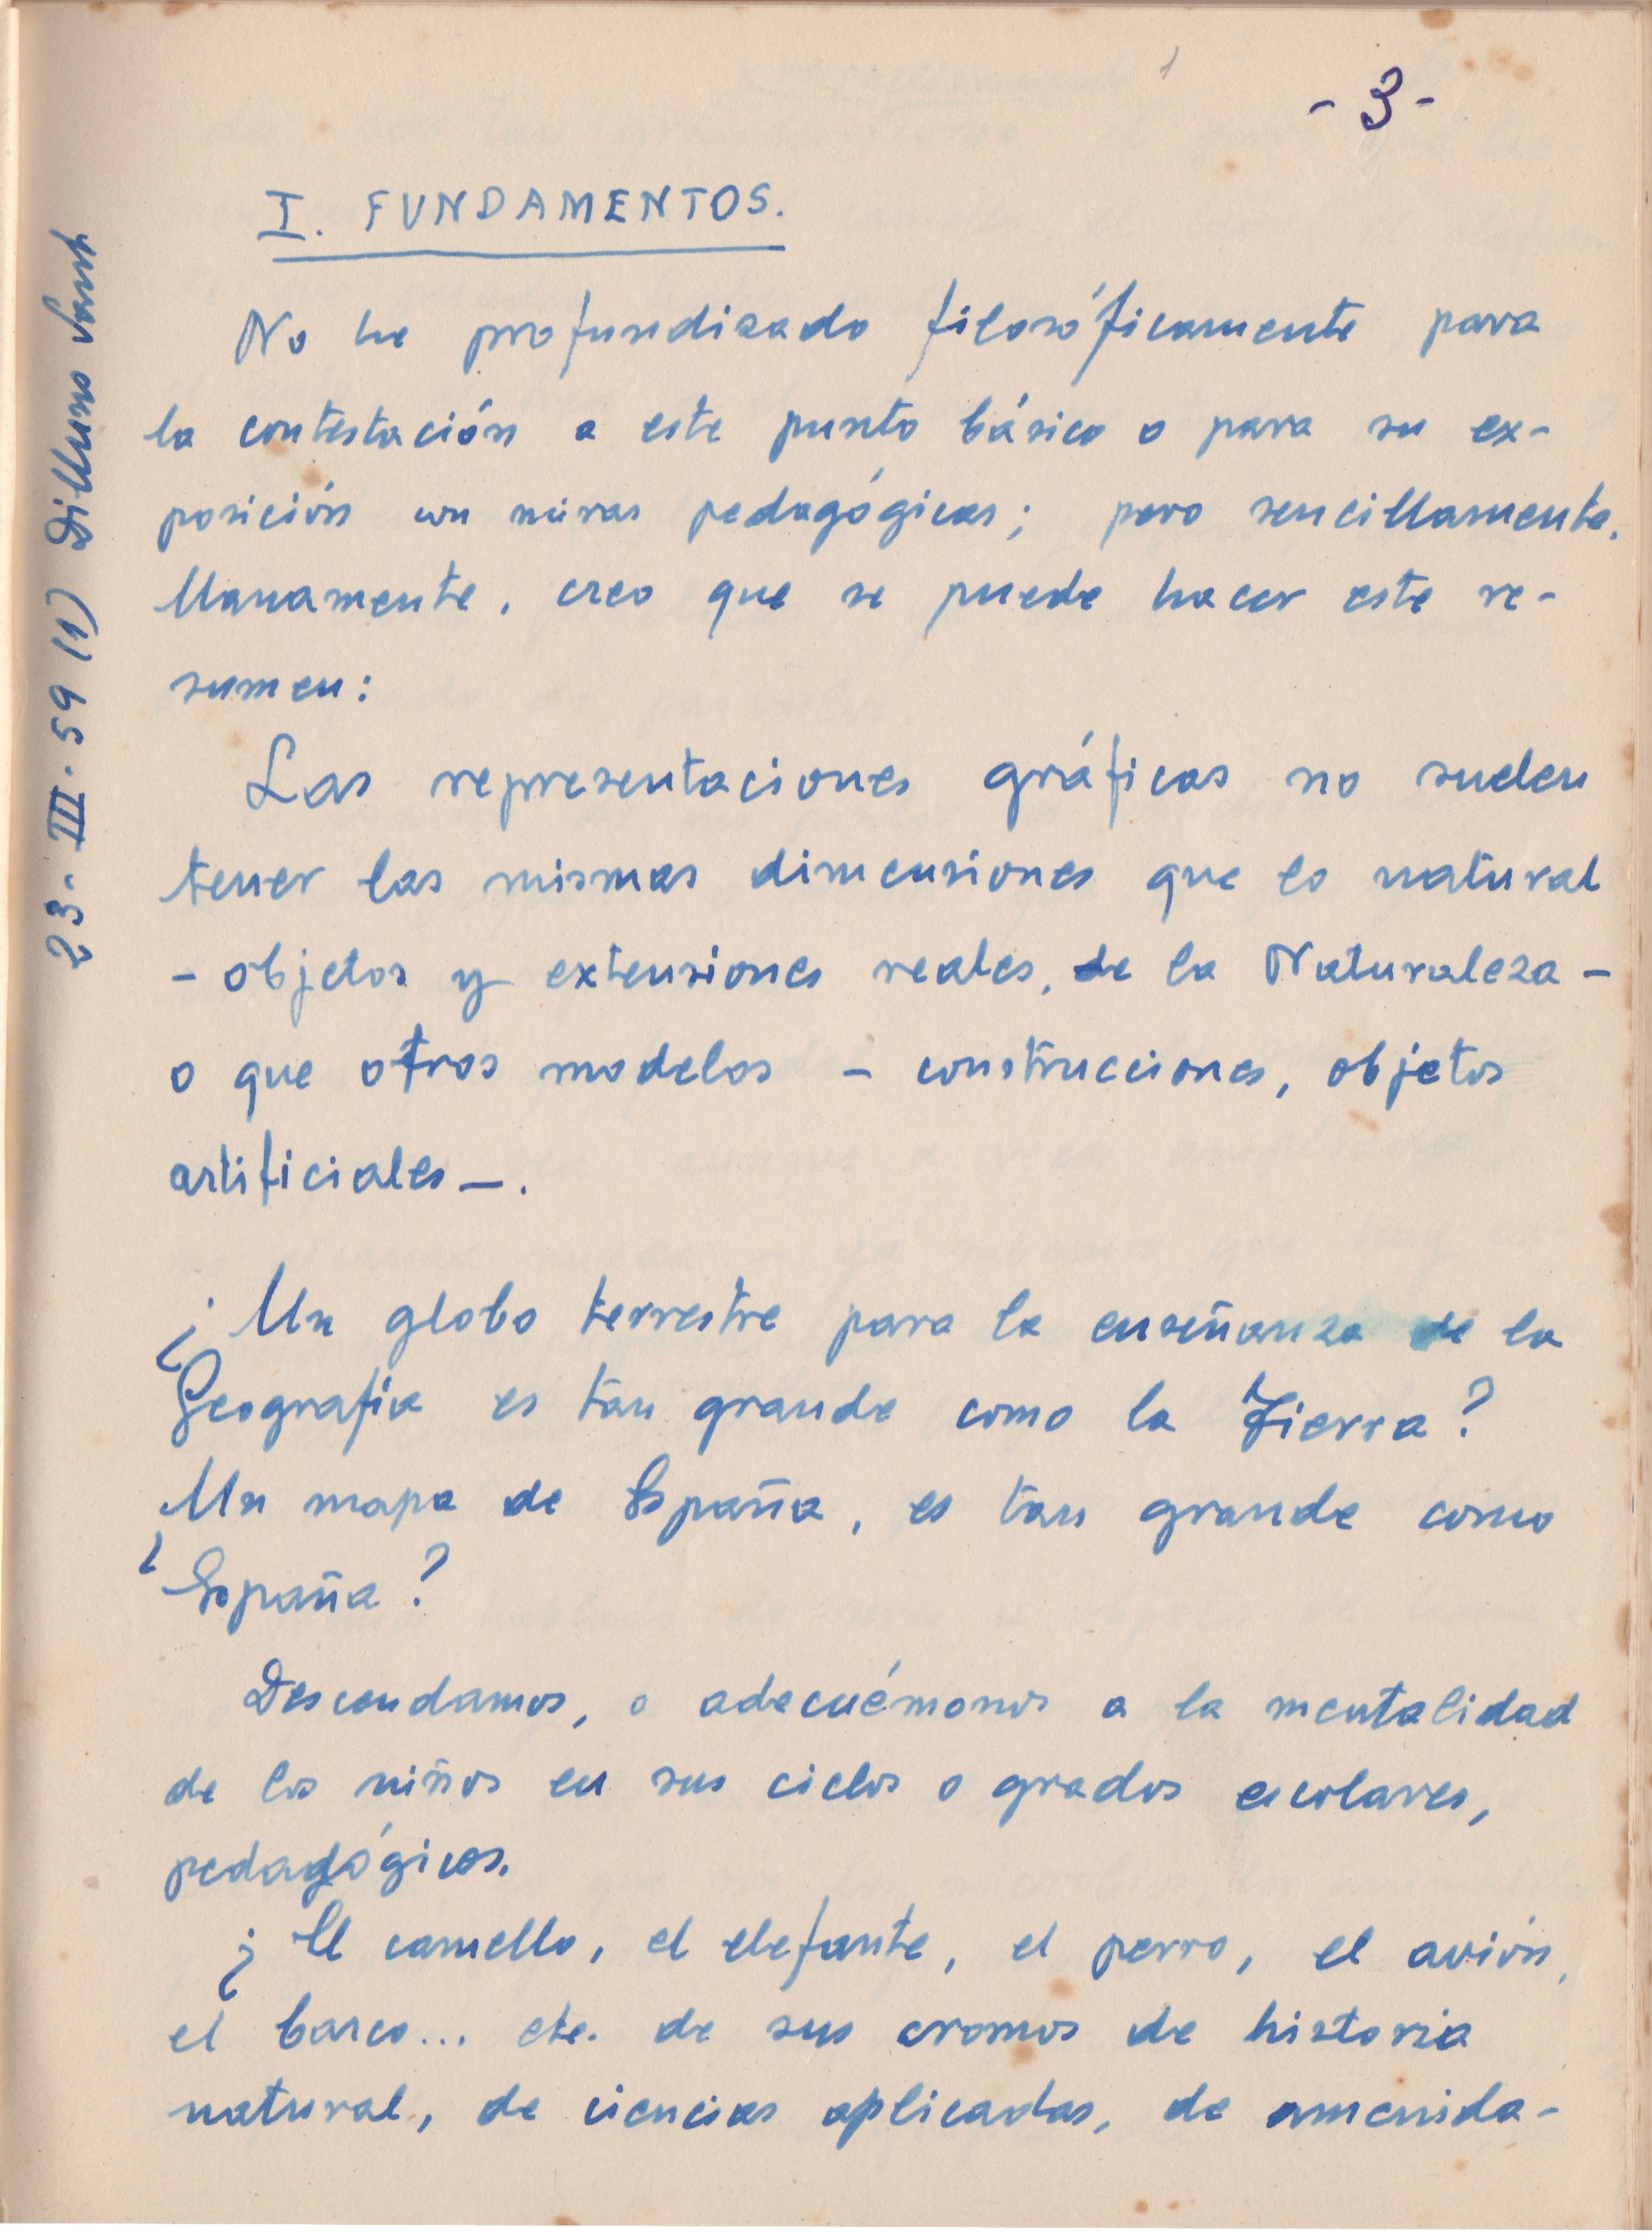 - 3 -
I. FUNDAMENTOS.
No he profundizado filosóficamente para
la contestación a este punto básico o para su ex-
posición con miras pedagógicas; pero sencillamente,
llanamente, creo que se puede hacer este re-
sumen:
Las representaciones gráficas no suelen
tener las mismas dimensiones que lo natural
- objetos y extensiones reales, de la Naturaleza -
o que otros modelos - construcciones, objetos
artificiales -.
¿Un globo terrestre para la enseñanza de la
Geografía es tan grande como la Tierra?
¿Un mapa de España, es tan grande como
España?
Descendamos, o adecuémonos a la mentalidad
de los niños en sus ciclos o grados escolares,
pedagógicos.
¿El camello, el elefante, el perro, el avión,
el barco... etc. de sus cromos de historia
natural, de ciencias aplicadas, de amenida-
23-III-59 (1) Dilluns Sant